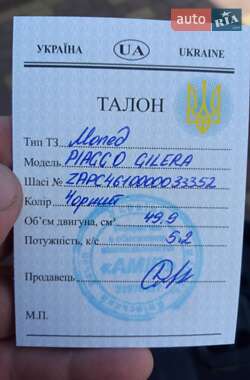 auto RIA
УКРАЇНА UA UKRAINE
ТАЛОН
Тип ТЗ. Мопед
Модель PIAGGO GILERA
Шасі № ZAPC4610000033352
Колір Чорний
Об'єм двигуна, см³ 49,9
Потужність, к/с 5.2
Продавець
М.П.